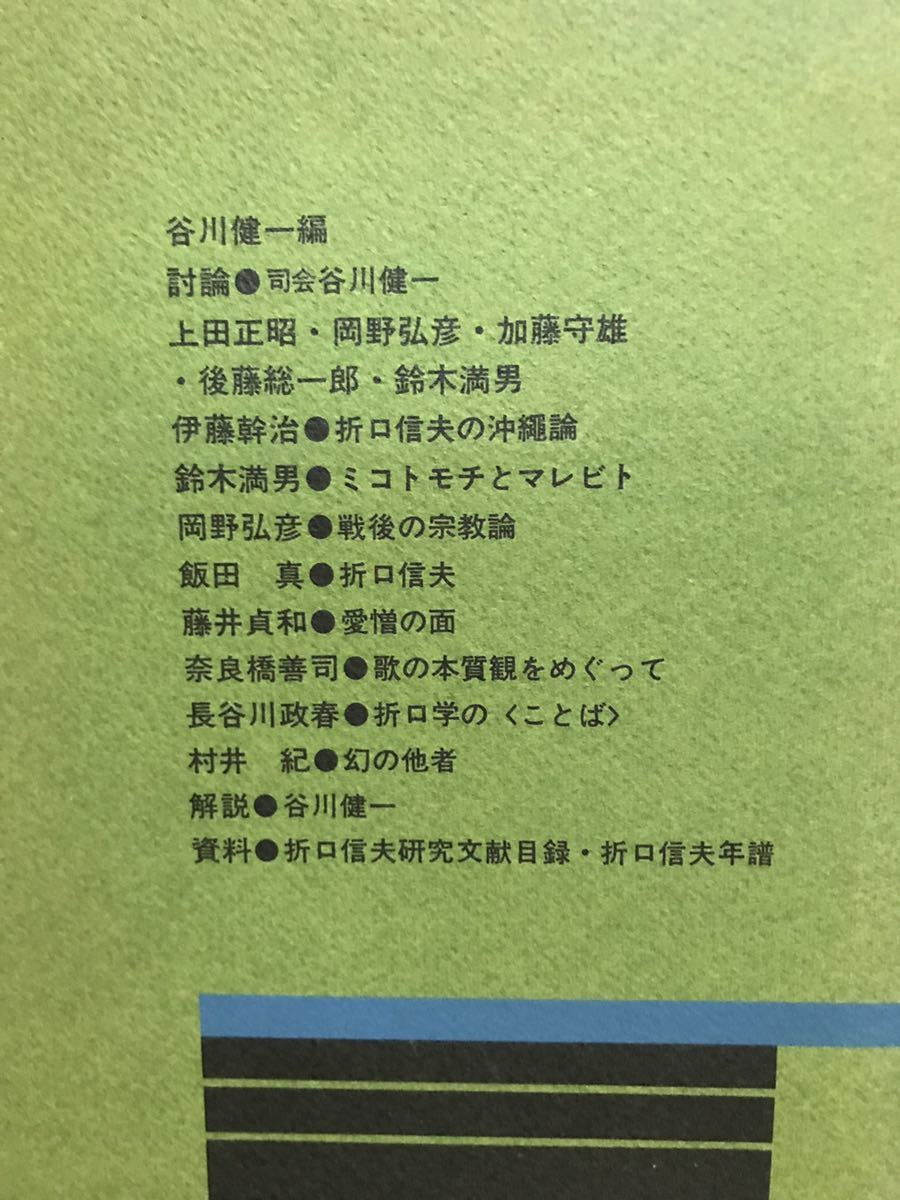 谷川健一編
討論●司会谷川健一
上田正昭・岡野弘彦・加藤守雄
・後藤総一郎・鈴木満男
伊藤幹治●折口信夫の沖繩論
鈴木満男●ミコトモチとマレビト
岡野弘彦●戦後の宗教論
飯田　真●折口信夫
藤井貞和●愛憎の面
奈良橋善司●歌の本質観をめぐって
長谷川政春●折口学の〈ことば〉
村井　紀●幻の他者
解説●谷川健一
資料●折口信夫研究文献目録・折口信夫年譜